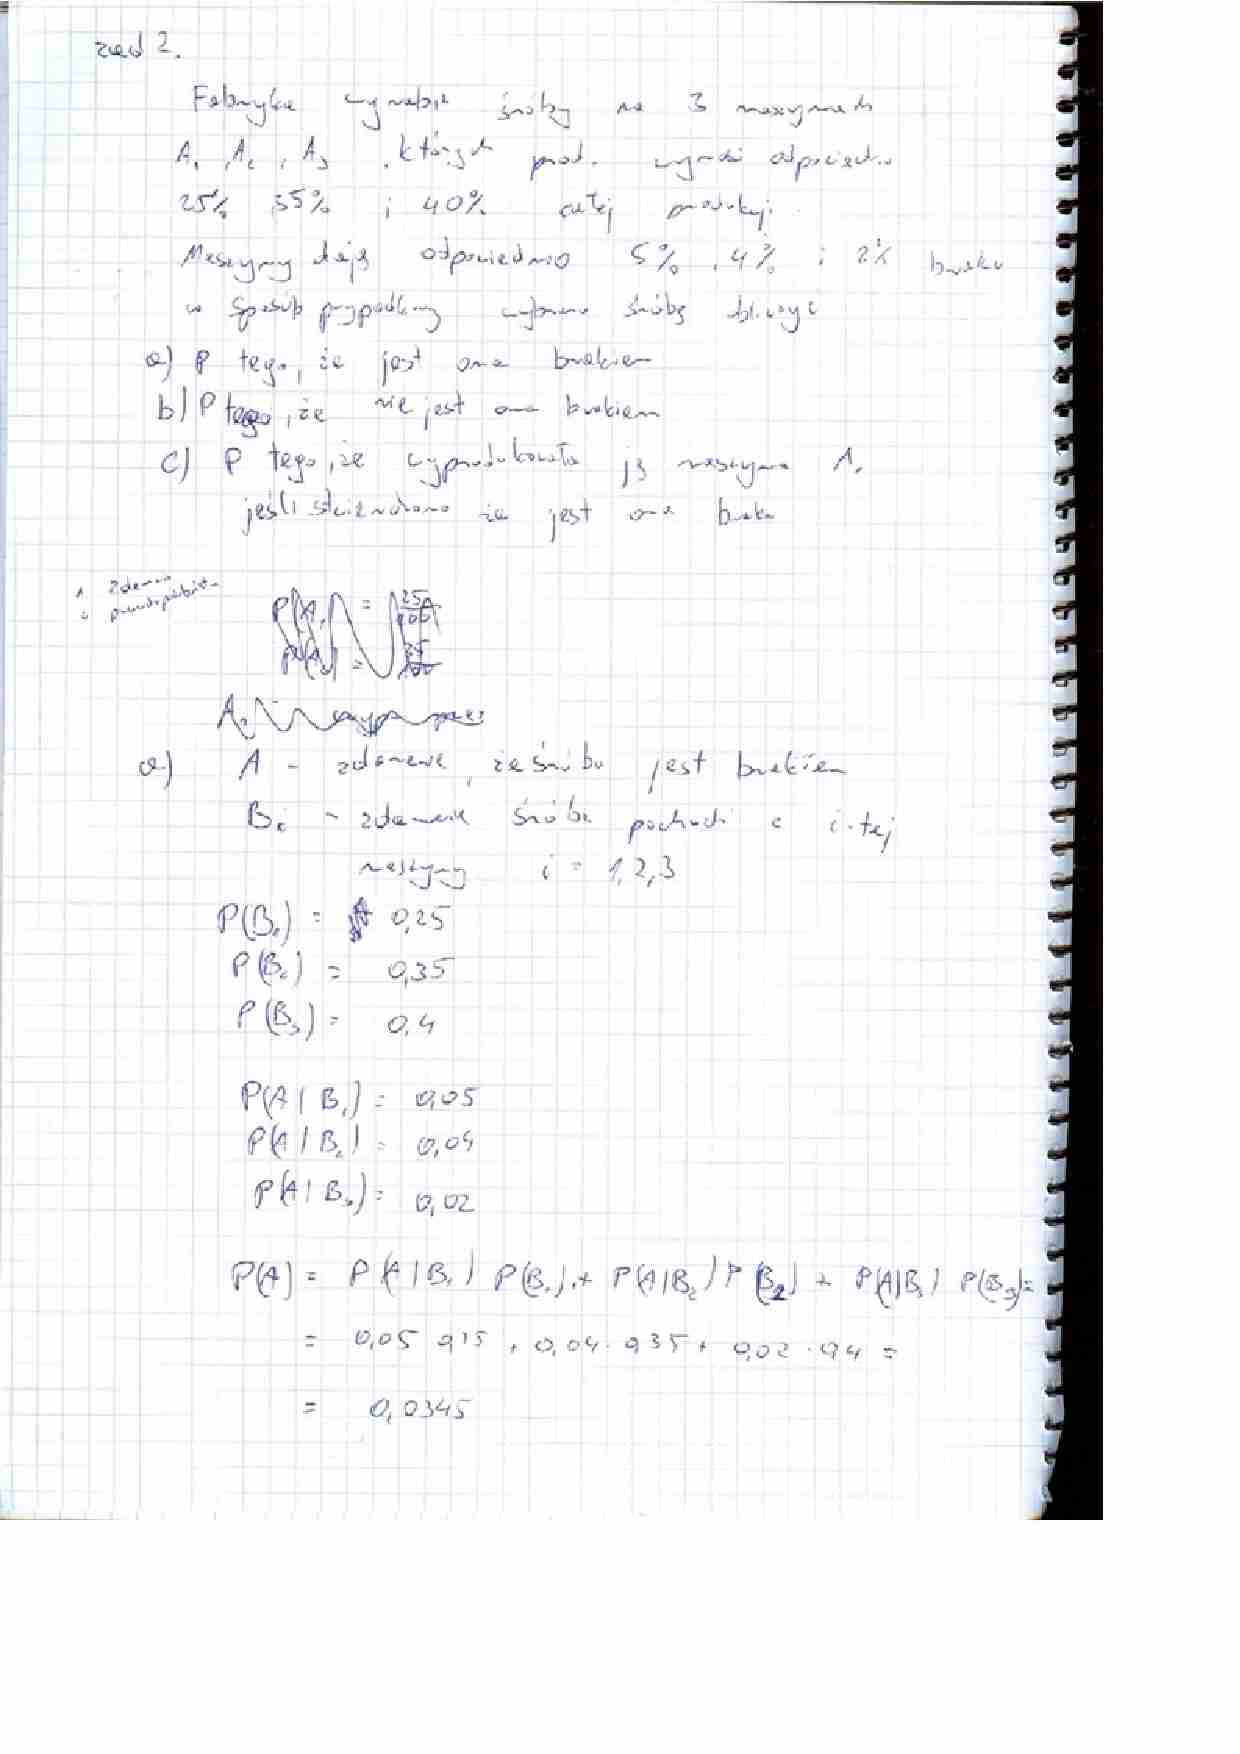 zad 2.
Fabryka wyrabia śruby na 3 maszynach
A₁, A₂, A₃, których prod. wynosi odpowiednio
25% 35% i 40% całej produkcji.
Maszyny dają odpowiednio 5%, 4% i 2% braków
w sposób przypadkowy wybrano śrubę obliczyć
a) P tego, że jest ona brakiem
b) P tego, że nie jest ona brakiem
c) P tego, że wyprodukowała ją maszyna A₁
jeśli stwierdzono że jest ona brakiem
1. Zdarzenia
2. prawdopodobieństwa
P(A₁) = 25/100
P(A₂) = 35/100
a) A - zdarzenie, że śruba jest brakiem
Bᵢ - zdarzenie śruba pochodzi z i-tej
maszyny i = 1,2,3
P(B₁) = 0,25
P(B₂) = 0,35
P(B₃) = 0,4
P(A | B₁) = 0,05
P(A | B₂) = 0,04
P(A | B₃) = 0,02
P(A) = P(A | B₁) P(B₁) + P(A | B₂) P(B₂) + P(A|B₃) P(B₃) =
= 0,05 · 0,25 + 0,04 · 0,35 + 0,02 · 0,4 =
= 0,0345